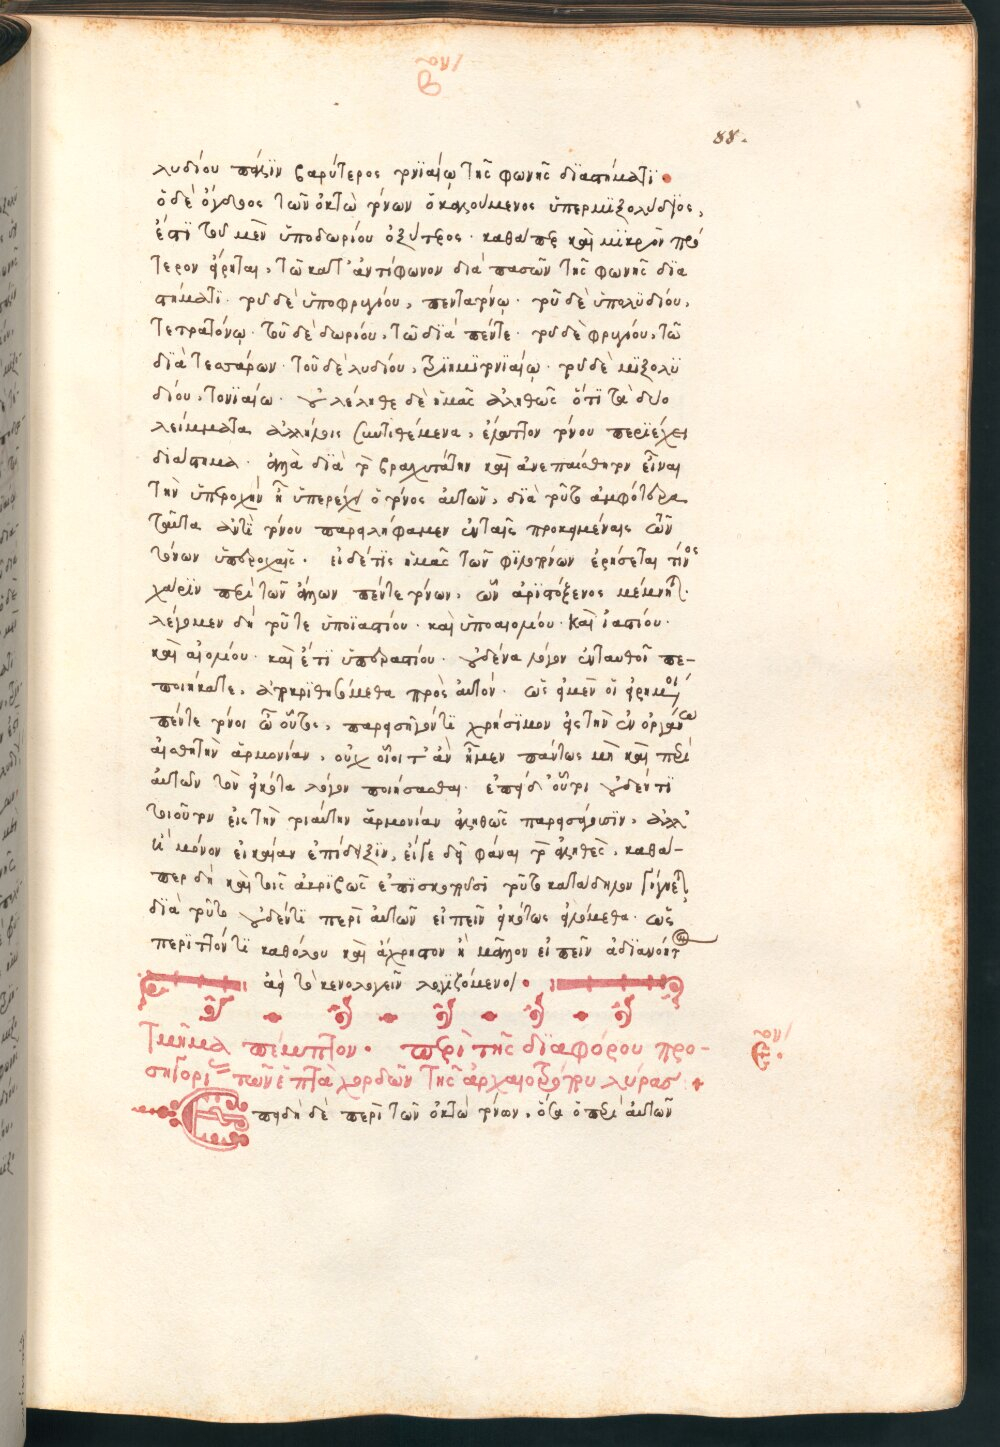 88.
λυδίου τάξιν βαρύτερος τονιαίω τῆς φωνῆς διαστήματι.
ὁ δὲ ὄγδοος τῶν ὀκτὼ τόνων ὁ καλούμενος ὑπερμιξολύδιος,
ἐστὶ τοῦ μὲν ὑποδωρίου ὀξύτερος· καθάπερ καὶ μικρὸν πρό
τερον εἴρηται, τῶ κατ' ἀντίφωνον διὰ πασῶν τῆς φωνῆς δια
στήματι· τοῦ δὲ ὑποφρυγίου, πεντατόνω· τοῦ δὲ ὑπολυδίου,
τετρατόνω· τοῦ δὲ δωρίου, τῶ διὰ πέντε· τοῦ δὲ φρυγίου, τῶ
διὰ τεσσάρων· τοῦ δὲ λυδίου, τριημιτονιαίω· τοῦ δὲ μιξολυ
δίου, τονιαίω· οὐ λέληθε δὲ ἡμᾶς ἀληθῶς ὅτι τὰ δύο
λείμματα ἀλλήλοις συντιθέμενα, ἔλαττον τόνου περιέχει
διάστημα· ἀλλὰ διὰ τὸ βραχυτάτην καὶ ἀνεπαίσθητον εἶναι
τὴν ὑπεροχὴν ἣ ὑπερέχει ὁ τόνος αὐτῶν, διὰ τοῦτο ἀμφότερα
ταῦτα ἀντὶ τόνου παρειλήφαμεν ἐν ταῖς προκειμέναις τῶν
τόνων ὑπεροχαῖς· εἰ δέ τις ἡμᾶς τῶν φιλοπόνων ἐρήσεται τίνος
χάριν περὶ τῶν ἄλλων πέντε τόνων, ὧν ἀριστόξενος μέμνηται·
λέγομεν δὴ τοῦ τε ὑποϊαστίου· καὶ ὑποαιολίου· καὶ ἰαστίου·
καὶ αἰολίου· καὶ ἔτι ὑπεραστίου· οὐδένα λόγον ἐνταυθοῖ πε-
ποιήκατε, ἀποκριθησόμεθα πρὸς αὐτόν· ὡς εἰ μὲν οἱ εἰρημένοι
πέντε τόνοι ὦ οὗτος, παρεισῆγόν τι χρήσιμον εἰς τὴν ἐν ὀργάνω
αἰσθητὴν ἁρμονίαν, οὐχ οἷοί τ' ἂν ἦμεν πάντως μὴ καὶ περὶ
αὐτῶν τὸν εἰκότα λόγον ποιήσασθαι· ἐπεὶ δ' οὗτοι οὐδέν τι
τοιοῦτον εἰς τὴν τοιαύτην ἁρμονίαν ἀληθῶς παρεισάγουσιν, ἀλλ'
ἢ μόνον εἰκαίαν ἐπίδειξιν, εἴ γε δεῖ φάναι τὸ ἀληθὲς, καθά-
περ δὴ καὶ τοῖς ἀκριβῶς ἐπισκοποῦσι τοῦτο κατάδηλον γίγνεται
διὰ τοῦτο οὐδέν τι περὶ αὐτῶν εἰπεῖν εἰκότως εἱλόμεθα· ὡς
περιττόν τι καθόλου καὶ ἄχρηστον ἢ μᾶλλον εἰπεῖν ἀδιανόητον
ἀεὶ τὸ κενολογεῖν λογιζόμενοι.
Τμῆμα πέμπτον. περὶ τῆς διαφόρου προ-
σηγορίας τῶν ἑπτὰ χορδῶν τῆς ἀρχαιοτρόπου λύρας
Ἐπειδὴ δὲ περὶ τῶν ὀκτὼ τόνων, ὅσα ὁ περὶ αὐτῶν